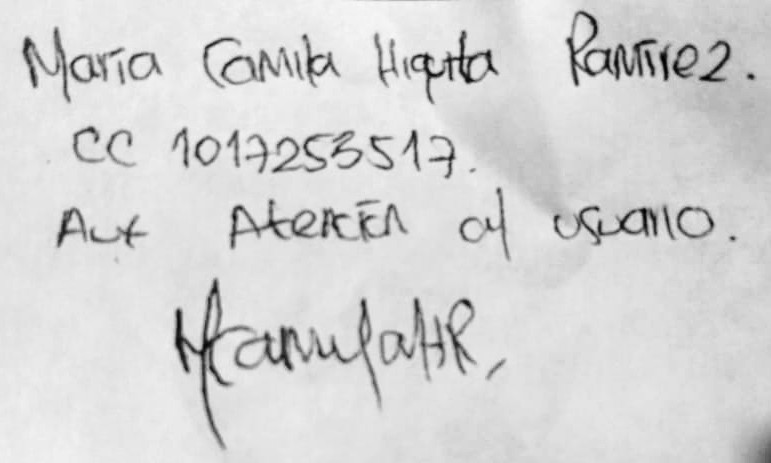 Maria Camila Higuita Ramirez.
CC 1017253517.
Aux Atención al usuario.
MCamilaHR,